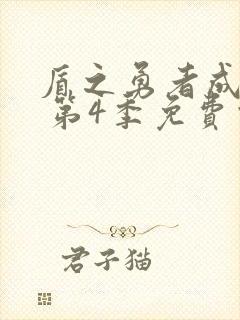 盾之勇者成
第4季免费
君子猫